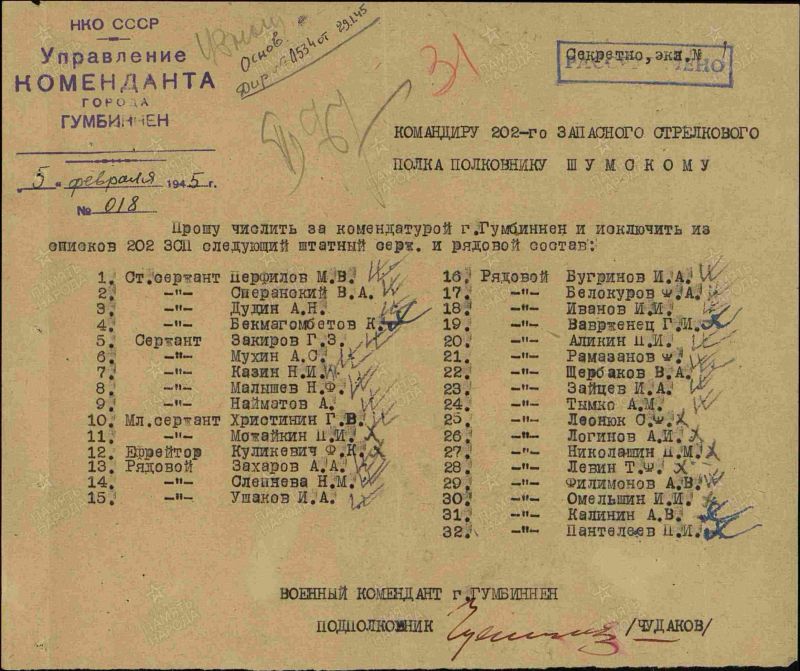 НКО СССР
Управление
КОМЕНДАНТА
ГОРОДА
ГУМБИННЕН
"5" февраля 1945 г.
№ 018
Основ.
Дир № 0534 от 29.1.45
31
Секретно, экз. № 1
РАССЕКРЕЧЕНО
КОМАНДИРУ 202-го ЗАПАСНОГО СТРЕЛКОВОГО
ПОЛКА ПОЛКОВНИКУ ШУМСКОМУ
Прошу числить за комендатурой г.Гумбиннен и исключить из
списков 202 ЗСП следующий штатный серж. и рядовой состав:
1. Ст.сержант Перфилов М.В.
2. -"- Сперанский В.А.
3. -"- Дудин А.Н.
4. -"- Бекмагомбетов К.
5. Сержант Закиров Г.З.
6. -"- Мухин А.С.
7. -"- Казин Н.И.
8. -"- Малышев Н.Ф.
9. -"- Найматов А.
10. Мл.сержант Христинин Г.В.
11. -"- Можайкин П.И.
12. Ефрейтор Куликевич Ф.К.
13. Рядовой Захаров А.А.
14. -"- Слепнева Н.М.
15. -"- Ушаков И.А.
16. Рядовой Бугринов И.А.
17. -"- Белокуров Ф.А.
18. -"- Иванов И.И.
19. -"- Вавренец Г.И.
20. -"- Аликин П.И.
21. -"- Рамазанов Ф.
22. -"- Щербаков В.А.
23. -"- Зайцев И.А.
24. -"- Тымко А.М.
25. -"- Леонюк С.Ф.
26. -"- Логинов А.И.
27. -"- Николашин П.М.
28. -"- Левин Т.Ф.
29. -"- Филимонов А.В.
30. -"- Омельшин И.И.
31. -"- Калинин А.В.
32. -"- Пантелеев П.И.
ВОЕННЫЙ КОМЕНДАНТ г.ГУМБИННЕН
ПОДПОЛКОВНИК /ЧУДАКОВ/